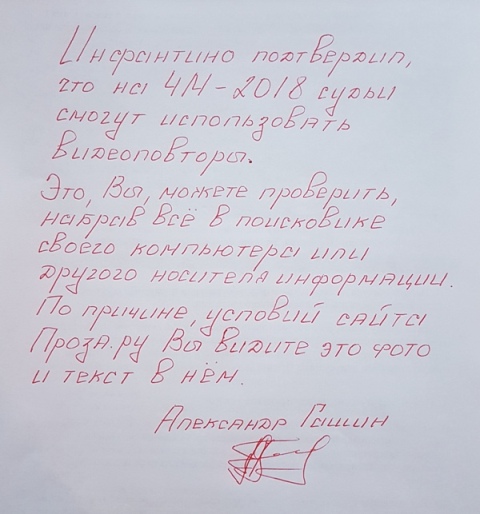 Инфантино подтвердил,
что на ЧМ-2018 судьи
смогут использовать
видеоповторы.
Это, Вы, можете проверить,
набрав всё в поисковике
своего компьютера или
другого носителя информации.
По причине, условий сайта
Проза.ру Вы видите это фото
и текст в нём.
Александр Гашин